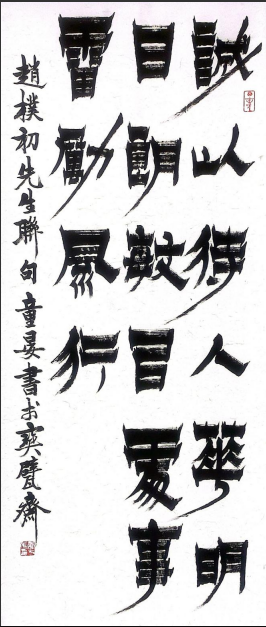 誠以待人華明
日朗敏處事
雷勵風行
趙樸初先生聯句童晏書於寶甓齋